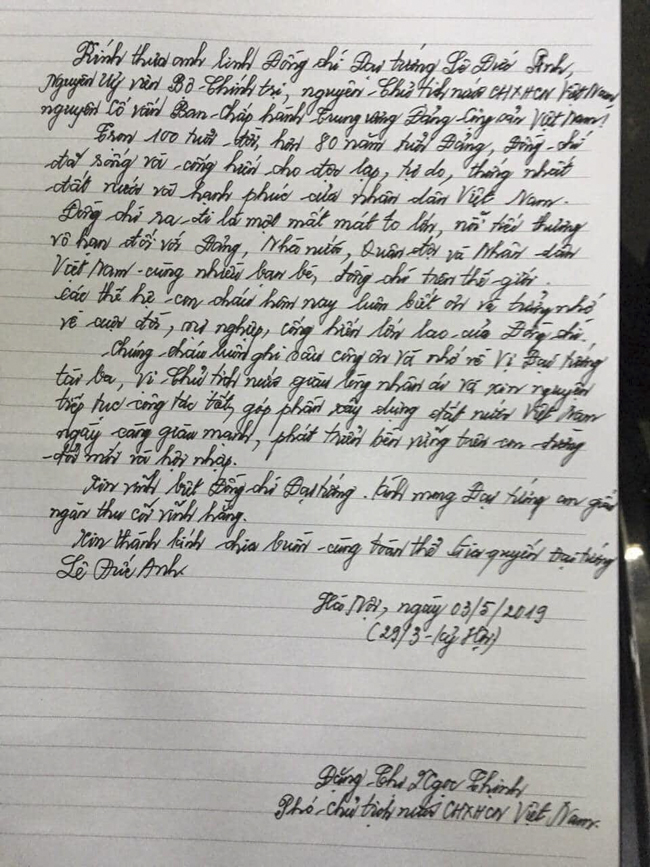 Kính thưa anh linh Đồng chí Đại tướng Lê Đức Anh,
Nguyên Uỷ viên Bộ Chính trị, nguyên Chủ tịch nước CHXHCN Việt Nam,
nguyên Cố vấn Ban Chấp hành Trung ương Đảng Cộng sản Việt Nam!
Tròn 100 tuổi đời, hơn 80 năm tuổi Đảng, Đồng chí
đã sống và cống hiến cho độc lập, tự do, thống nhất
đất nước và hạnh phúc của nhân dân Việt Nam.
Đồng chí ra đi là một mất mát to lớn, nỗi tiếc thương
vô hạn đối với Đảng, Nhà nước, Quân đội và Nhân dân
Việt Nam cùng nhiều bạn bè, đồng chí trên thế giới.
Các thế hệ con cháu hôm nay luôn biết ơn và tưởng nhớ
về cuộc đời, sự nghiệp, cống hiến lớn lao của Đồng chí.
Chúng cháu luôn ghi sâu công ơn và nhớ về Vị Đại tướng
tài ba, Vị Chủ tịch nước giàu lòng nhân ái và xin nguyện
tiếp tục công tác tốt, góp phần xây dựng đất nước Việt Nam
ngày càng giàu mạnh, phát triển bền vững trên con đường
đổi mới và hội nhập.
Xin vĩnh biệt Đồng chí Đại tướng. Kính mong Đại tướng an giấc
ngàn thu cõi vĩnh hằng.
Xin thành kính chia buồn cùng toàn thể Gia quyến Đại tướng
Lê Đức Anh.
Hà Nội, ngày 03/5/2019
(29/3 - Kỷ Hợi)
Đặng Thị Ngọc Thịnh
Phó Chủ tịch nước CHXHCN Việt Nam.